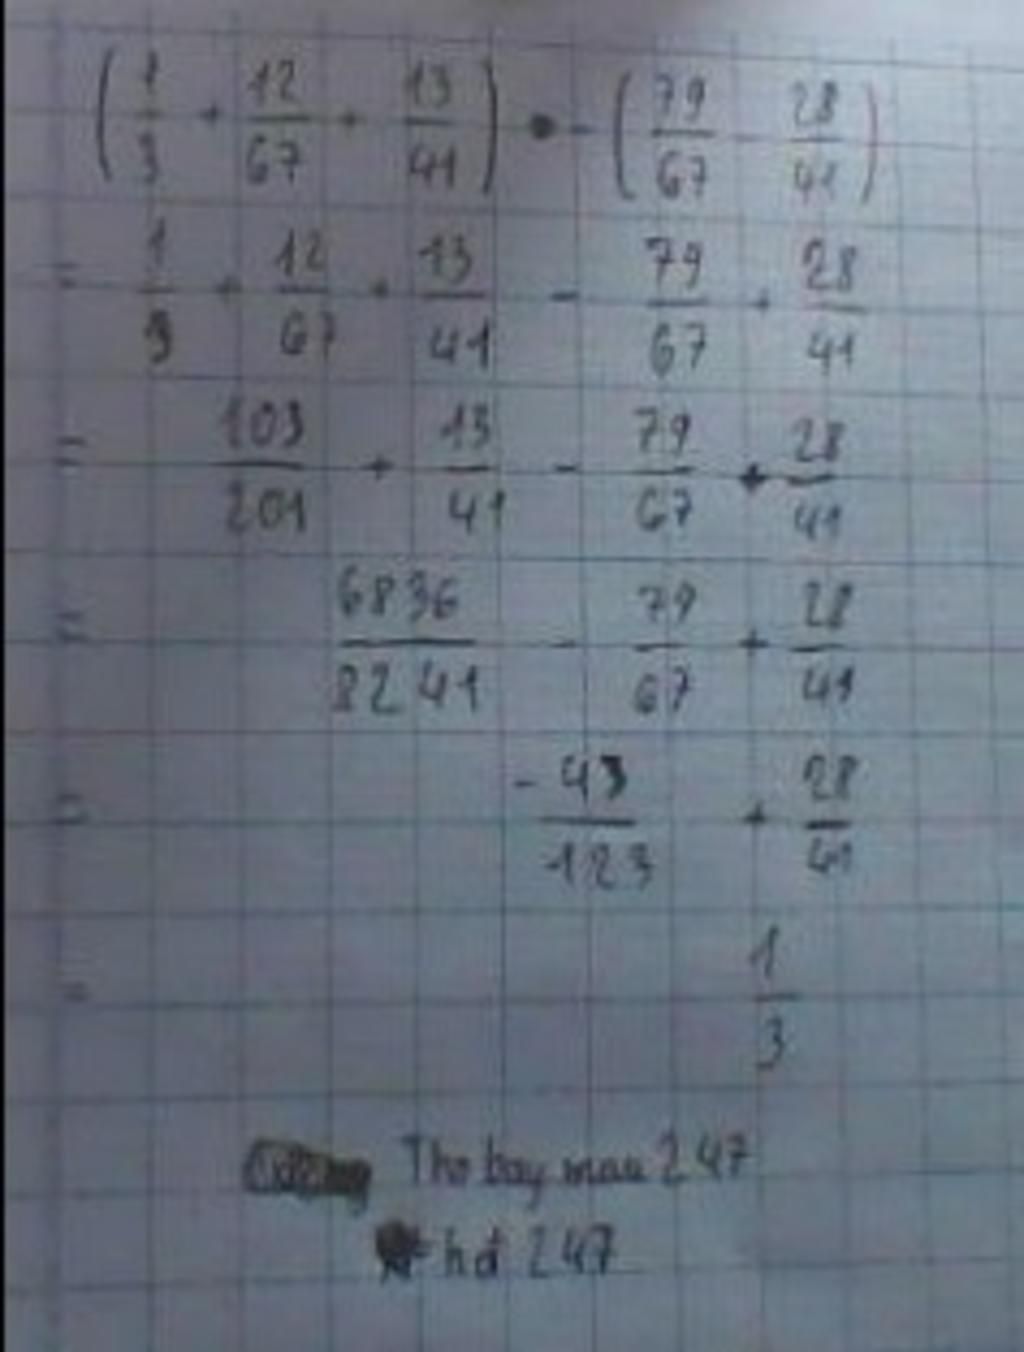 (1/3 + 12/67 + 13/41) - (79/67 - 28/41)
= 1/3 + 12/67 + 13/41 - 79/67 + 28/41
= 103/201 + 13/41 - 79/67 + 28/41
= 6836/8241 - 79/67 + 28/41
= -43/123 + 28/41
= 1/3
Tho bay mau 247
hd 247